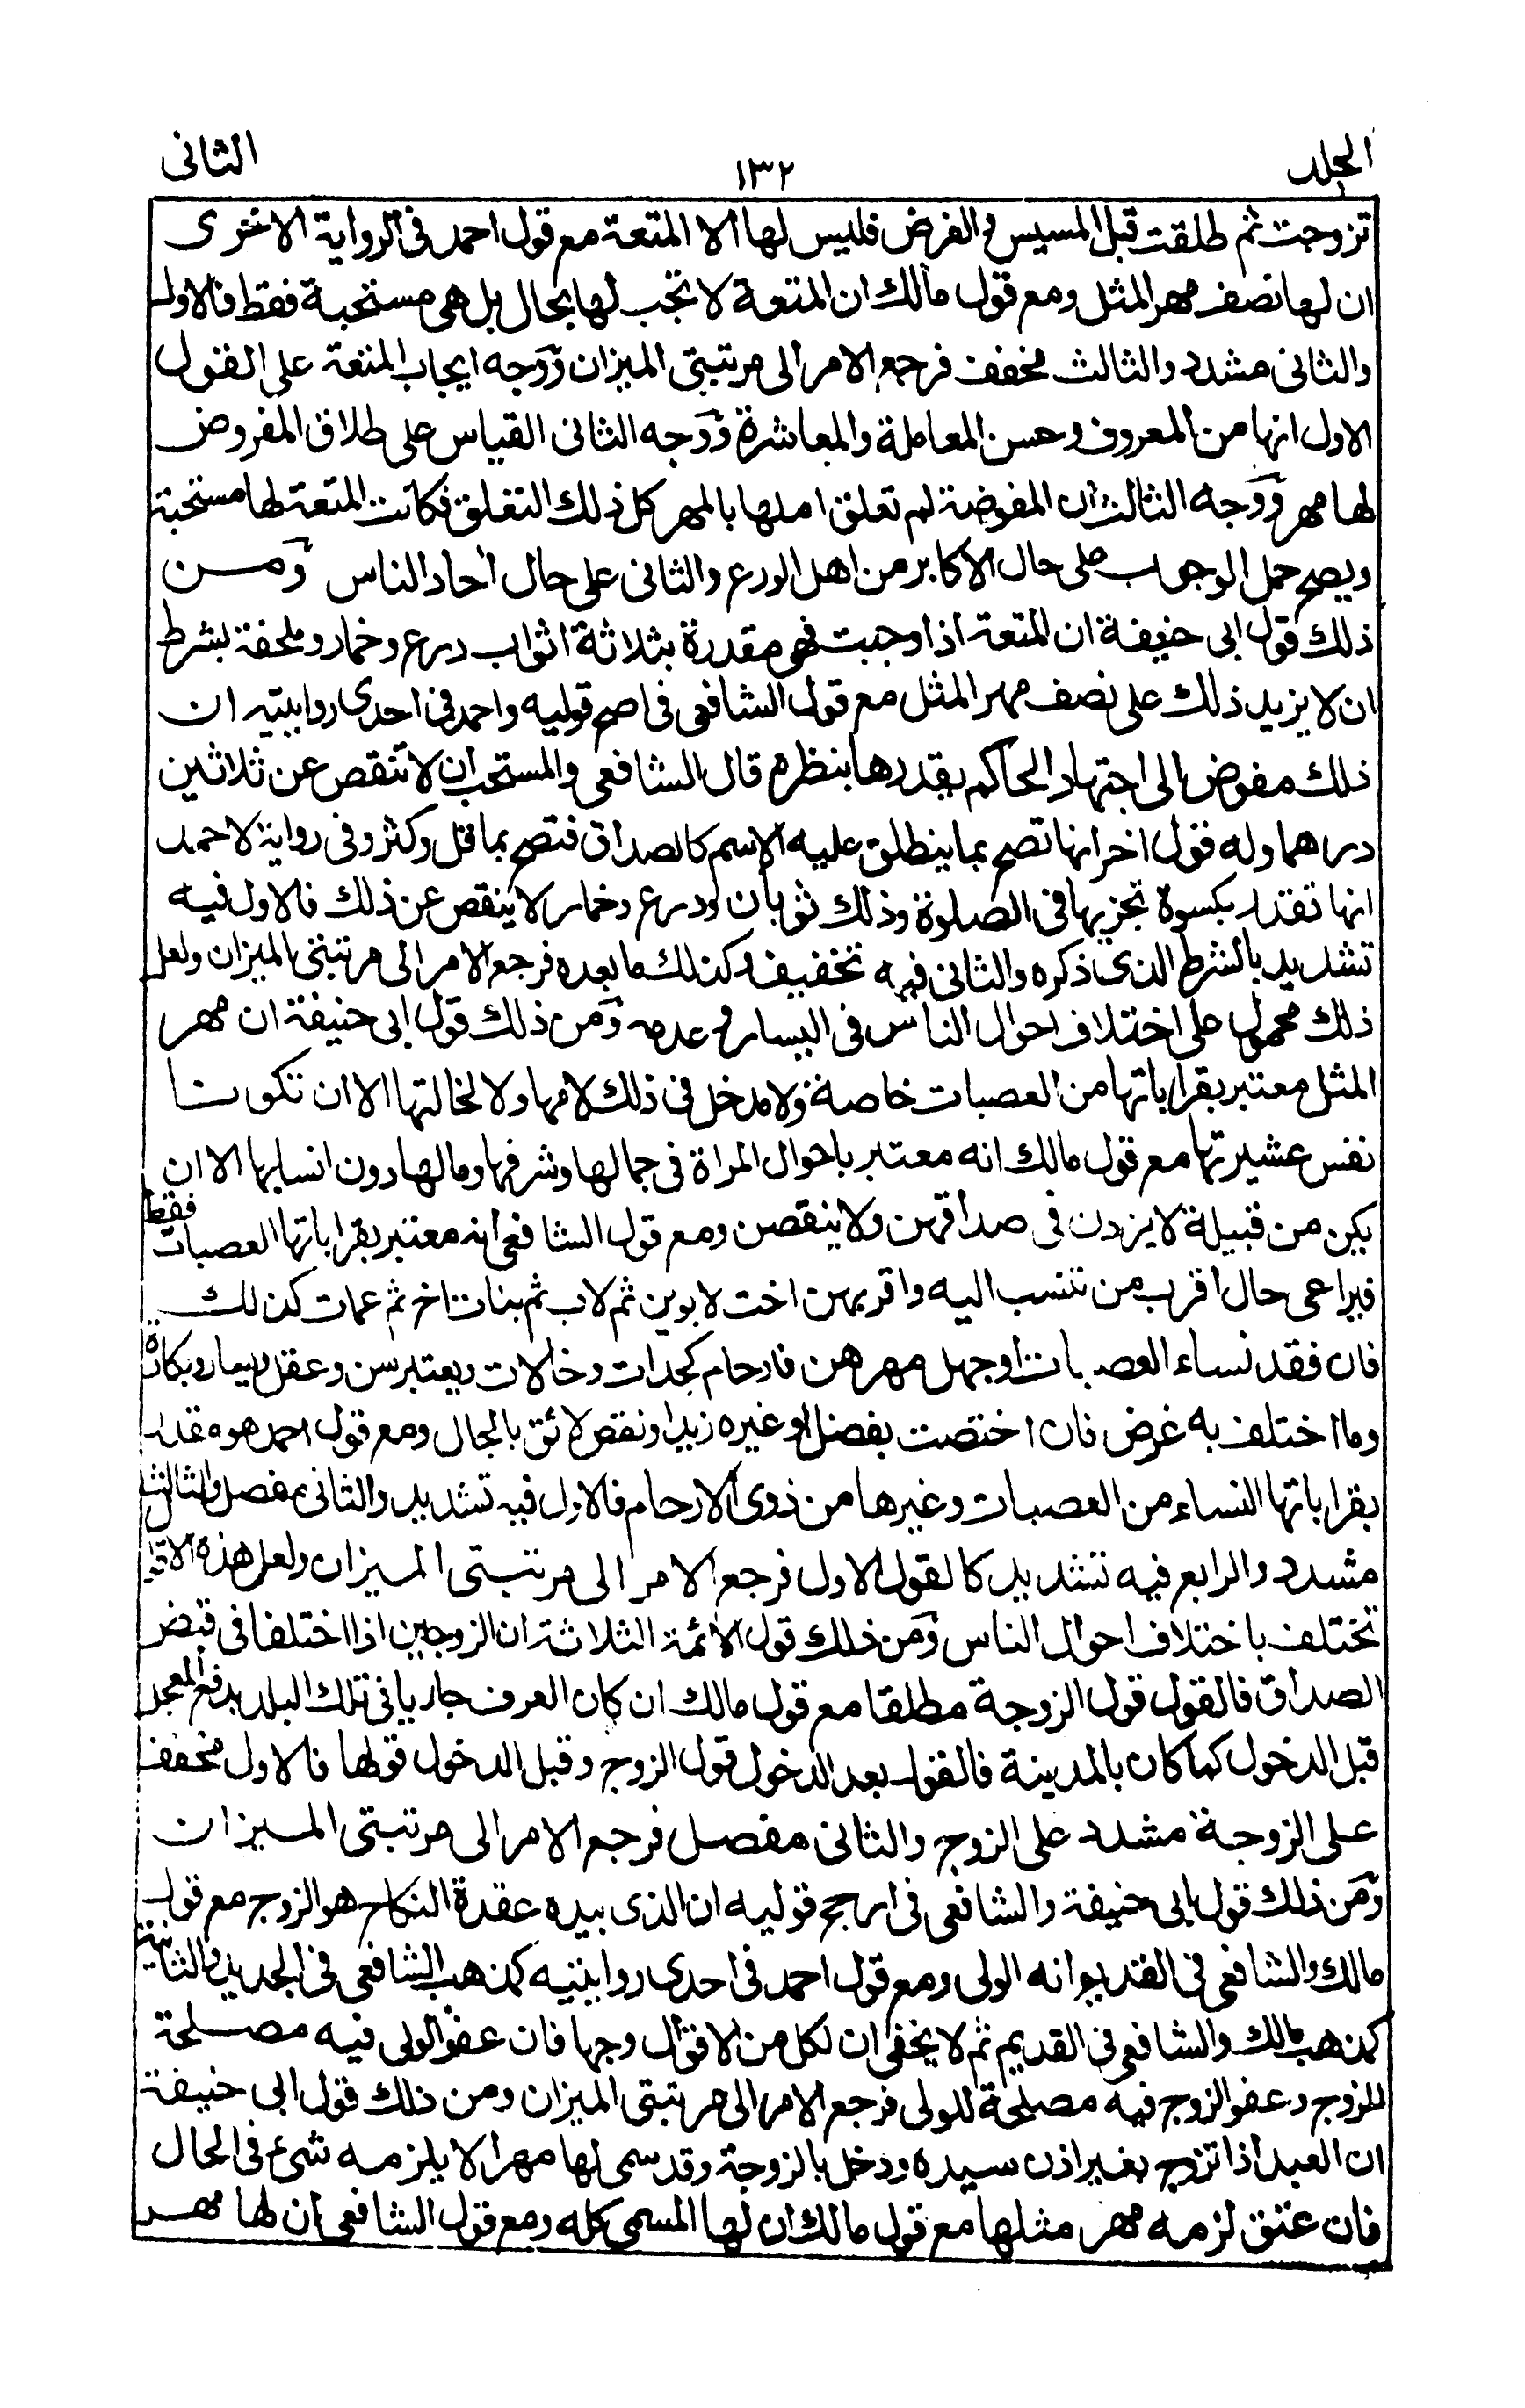 الجلد ١٣٢ الثانى
تزوجت ثم طلقت قبل المسيس و الفرض فليس لها الا المتعة مع قول احمد فى الرواية الاخرى
ان لها نصف مهر المثل ومع قول مالك ان المتعة لا تجب لها بحال بل هى مستحبة فقط فالاول
والثانى مشدد والثالث مخفف فرجع الامر الى مرتبتى الميزان ووجه ايجاب المتعة على القول
الاول انها من المعروف وحسن المعاملة والمعاشرة ووجه الثانى القياس على طلاق المفروض
لها مهر ووجه الثالث ان المفوضة لم تعلق املها بالمهر كل ذلك التعلق فكانت المتعة لها مستحبة
ويصح حمل الوجوب على حال الاكابر من اهل الورع والثانى على حال احاد الناس ومن
ذلك قول ابى حنيفة ان المتعة اذا وجبت فهى مقدرة بثلاثة اثواب درع وخمار وملحفة بشرط
ان لا يزيد ذلك على نصف مهر المثل مع قول الشافعى فى اصح قوليه واحمد فى احدى روايتيه ان
ذلك مفوض الى اجتهاد الحاكم يقدرها بنظره قال الشافعى والمستحب ان لا تنقص عن ثلاثين
درهما وله قول اخر انها تصح بما ينطلق عليه الاسم كالصداق فتصح بما قل وكثر وفى رواية لاحمد
انها تقدر بكسوة تجزيها فى الصلوة وذلك ثوبان ودرع وخمار لا ينقص عن ذلك فالاول فيه
تشديد بالشرط الذى ذكره والثانى فيه تخفيف وكذلك ما بعده فرجع الامر الى مرتبتى الميزان ولعل
ذلك محمول على اختلاف احوال الناس فى اليسار و عدمه ومن ذلك قول ابى حنيفة ان مهر
المثل معتبر بقراباتها من العصبات خاصة ولا مدخل فى ذلك لامها ولا لخالتها الا ان تكونا
نفس عشيرتها مع قول مالك انه معتبر باحوال المراة فى جمالها وشرفها ومالها دون انسابها الا ان
يكن من قبيلة لا يزدن فى صداقهن ولا ينقصن ومع قول الشافعى انه معتبر بقراباتها العصبات فقط
فيراعى حال اقرب من تنسب اليه واقربهن اخت لابوين ثم لاب ثم بنات اخ ثم عمات كذلك
فان فقد نساء العصبات او جهل مهرهن فارحام كجدات وخالات ويعتبر سن وعقل ويسار وبكارة
وما اختلف به غرض فان اختصت بفضل او غيره زيد او نقص لائق بالحال ومع قول احمد هو مقدر
بقراباتها النساء من العصبات وغيرها من ذوى الارحام فالاول فيه تشديد والثانى مفصل والثالث
مشدد والرابع فيه تشديد كالقول الاول فرجع الامر الى مرتبتى الميزان ولعل هذه
تختلف باختلاف احوال الناس ومن ذلك قول الائمة الثلاثة ان الزوجين اذا اختلفا فى قبض
الصداق فالقول قول الزوجة مطلقا مع قول مالك ان كان العرف جاريا فى تلك البلد بدفع المعجل
قبل الدخول كما كان بالمدينة فالقول بعد الدخول قول الزوج وقبل الدخول قولها فالاول مخفف
على الزوجة مشدد على الزوج والثانى مفصل فرجع الامر الى مرتبتى الميزان
ومن ذلك قول ابى حنيفة والشافعى فى ارجح قوليه ان الذى بيده عقدة النكاح هو الزوج مع قول
مالك والشافعى فى القديم انه الولى ومع قول احمد فى احدى روايتيه كمذهب الشافعى فى الجديد والثانية
كمذهب مالك والشافعى فى القديم ثم لا يخفى ان لكل من الاقوال وجها فان عفو الولى فيه مصلحة
للزوج وعفو الزوج فيه مصلحة للولى فرجع الامر الى مرتبتى الميزان ومن ذلك قول ابى حنيفة
ان العبد اذا تزوج بغير اذن سيده ودخل بالزوجة وقد سمى لها مهرا لا يلزمه شئ فى الحال
فان عتق لزمه مهر مثلها مع قول مالك ان لها المسمى كله ومع قول الشافعى ان لها مهر